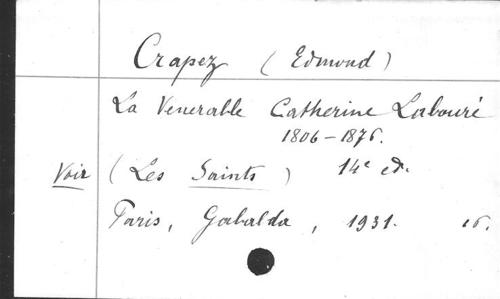 Crapez (Edmond)
La Venerable Catherine Labouré
1806-1876.
Voir (Les Saints) 14e ed.
Paris, Gabalda, 1931. 16.